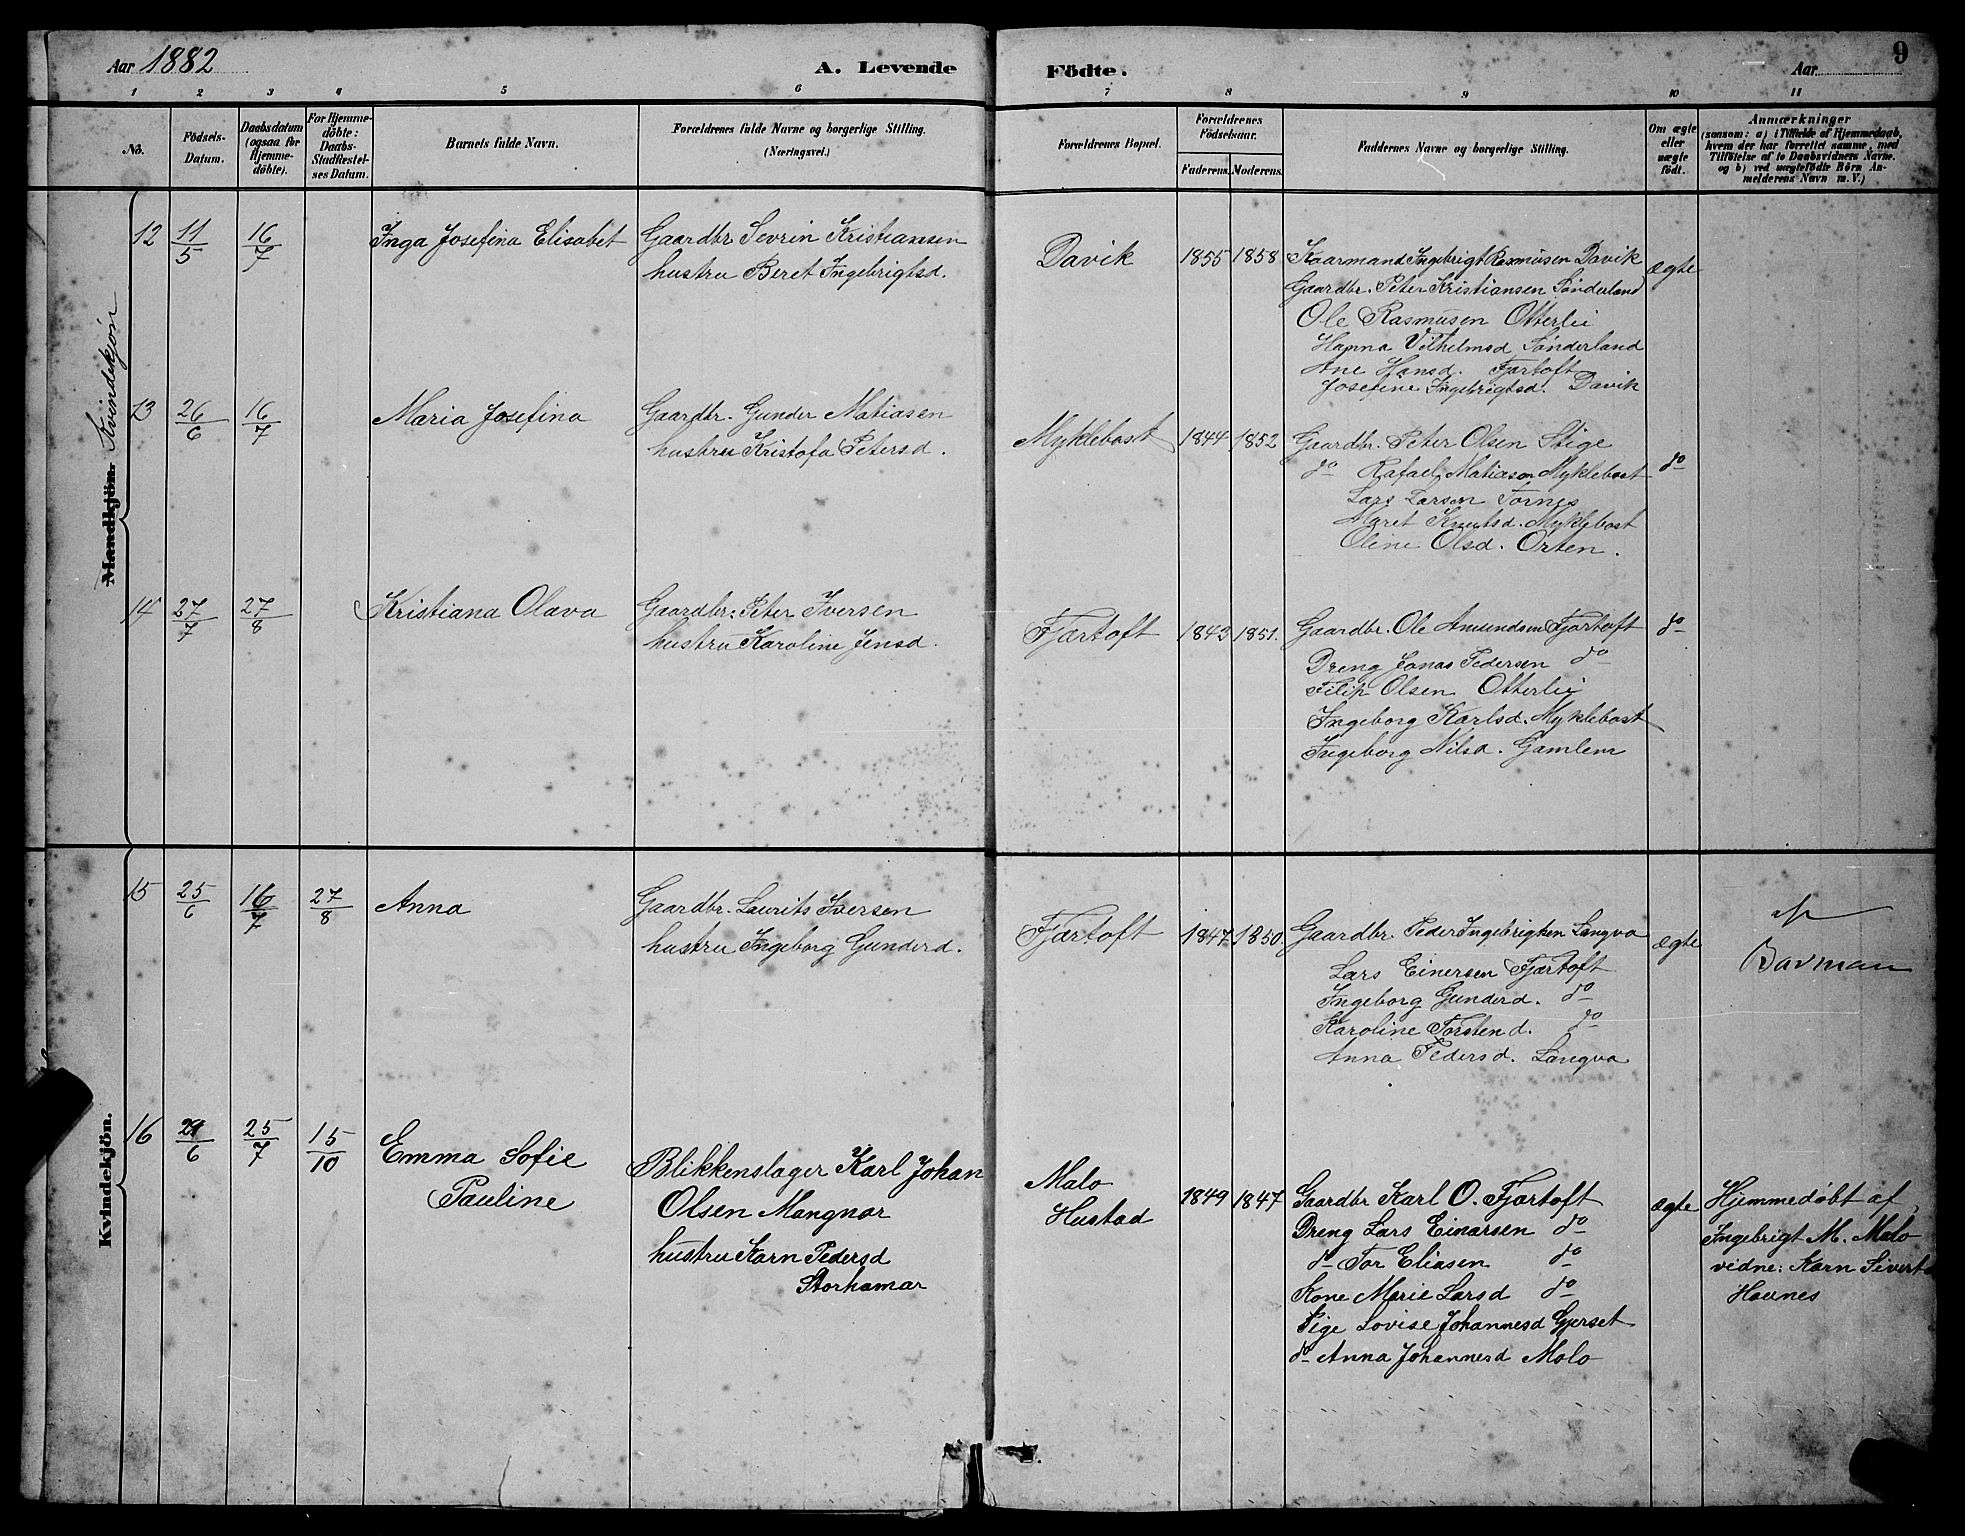 Aar 1882
A. Levende
Födte.
Aar
9
1 2 3 4 5 6 7 8 9 10 11
No.
Födsels-Datum.
Daabsdatum (ogsaa for Hjemme-döbte).
For Hjemme-döbte: Daabs-Stadfæstel-ses Datum.
Barnets fulde Navn.
Forældrenes fulde Navne og borgerlige Stilling.
(Næringsvei.)
Forældrenes Bopæl.
Forældrenes Födselsaar.
Faderens. Moderens.
Faddernes Navne og borgerlige Stilling.
Om ægte eller uægte födt.
Anmærkninger
(saasom: a) i Tilfælde af Hjemmedaab, hvem der har forrettet samme, med Tilföielse af to Daabsvidners Navne. og b) ved uægtefödte Börn An-melderens Navn m. V.)
Mandkjön. Kvindekjön
12 11/5 16/7 Inga Josefina Elisabet
Gaardbr Sevrin Kristiansen
hustru Beret Ingebrigtsd.
Davik 1855 1858
Kaarmand Ingebrigt Rasmusen Davik
Gaardbr. Peter Kristiansen Sönderland
Ole Rasmusen Otterlei
Hanna Vilhelmsd Sönderland
Ane Hansd. Fjærtoft
Josefine Ingebrigtsd. Davik
ægte
13 26/6 16/7 Maria Josefina
Gaardbr. Gunder Matiasen
hustru Kristofa Petersd.
Myklebost 1844 1852
Gaardbr. Peter Olsen Stige
do Rafael Matiason Myklebost
Lars Larsen Tornes
Maret Knutsd. Myklebost
Oline Olsd. Orten.
do
14 27/7 27/8 Kristiana Olava
Gaardbr: Peter Iversen
hustru Karoline Jensd.
Fjærtoft 1843 1851.
Gaardbr. Ole Amundsen Fjærtoft
Dreng Jonas Pedersen do
Filip Olsen Otterlei
Ingeborg Karlsd. Myklebost
Ingeborg Nilsd. Gamlem
do
Kvindekjön.
15 25/6 16/7 27/8 Anna
Gaardbr. Laurits Iversen
hustru Ingeborg Gunderd.
Fjærtoft 1847 1850.
Gaardbr Peder Ingebrigtsen Langva
Lars Einersen Fjærtoft
Ingeborg Gunderd. do
Karoline Torstend. do
Anna Pedersd. Langva
ægte
16 /6 25/7 15/10 Emma Sofie
Pauline
Blikkenslager Karl Johan
Olsen Mangnar
hustru Karn Pedersd
Storhamar
Malo
Hustad
1849 1847
Gaardbr Karl O. Fjærtoft
Dreng Lars Einarsen do
do Tor Eliasen do
Kone Marie Larsd do
Pige Lovise Johannesd Gjerset
do Anna Johannesd Molo
ægte
Hjemmedöbt af
Ingebrigt M. Malo
vidne: Karn Sivert
Havnes